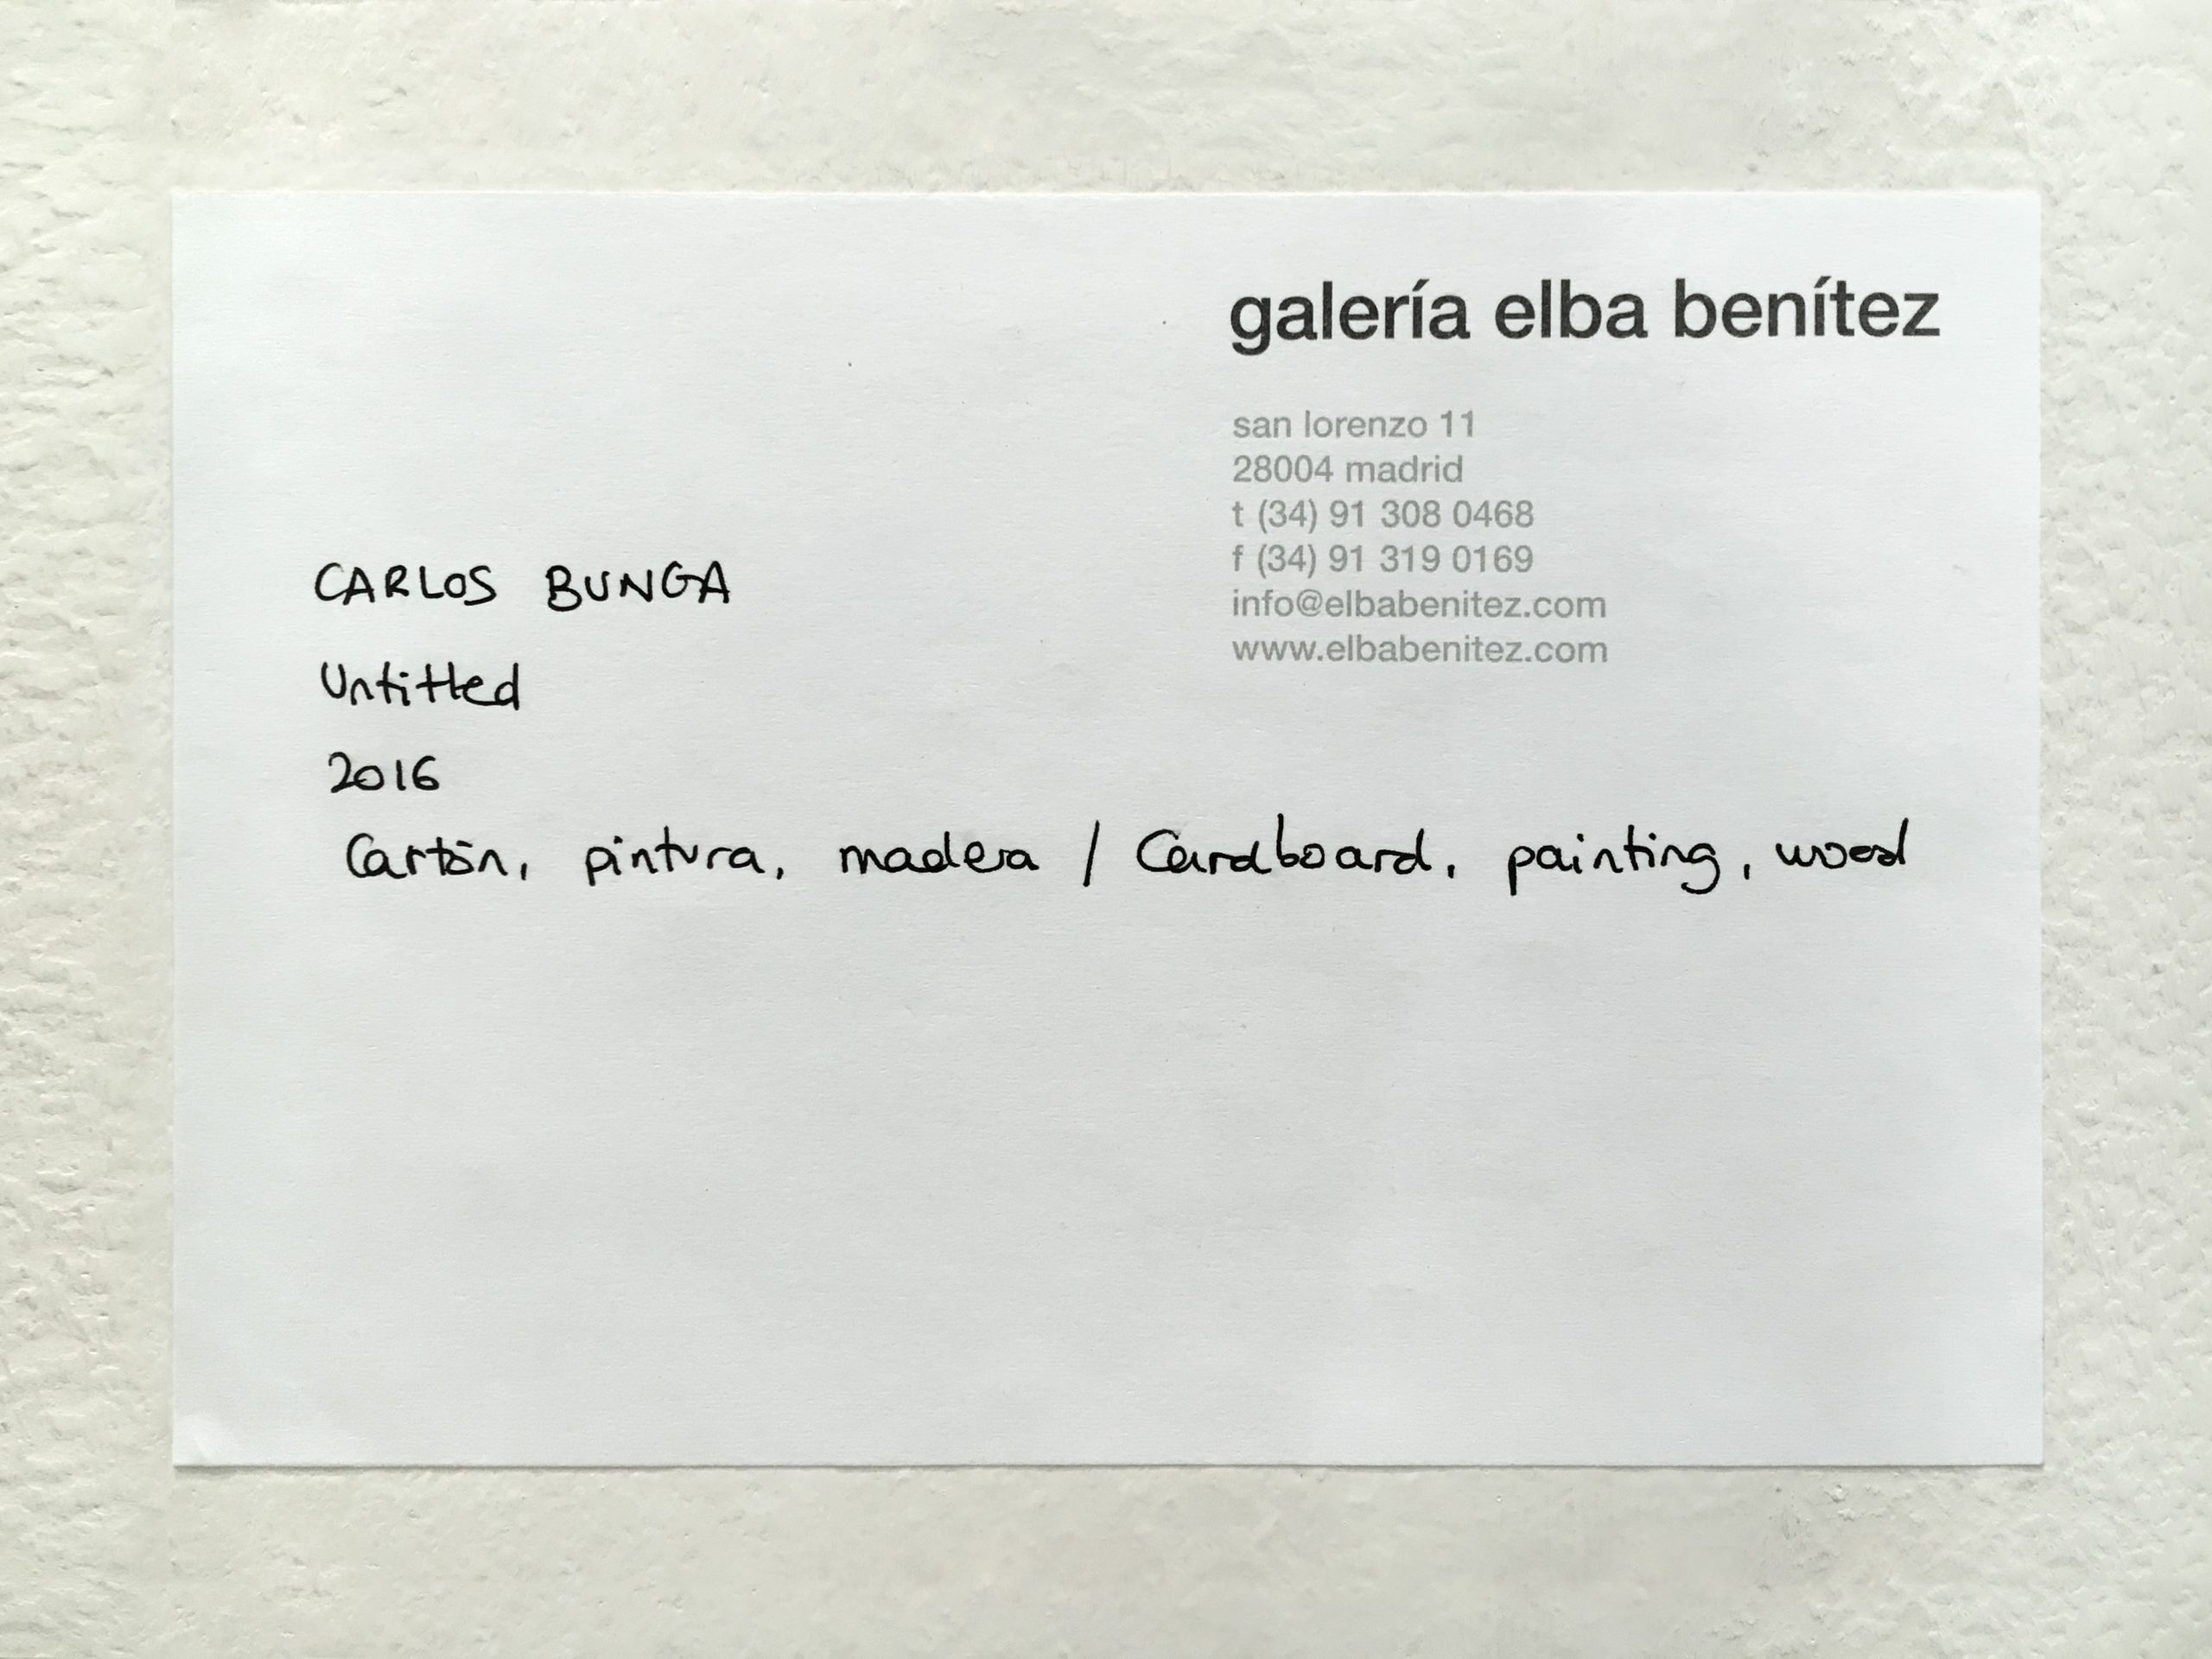 galería elba benítez
san lorenzo 11
28004 madrid
t (34) 91 308 0468
f (34) 91 319 0169
info@elbabenitez.com
www.elbabenitez.com
CARLOS BUNGA
Untitled
2016
Cartón, pintura, madera / Cardboard, painting, wood